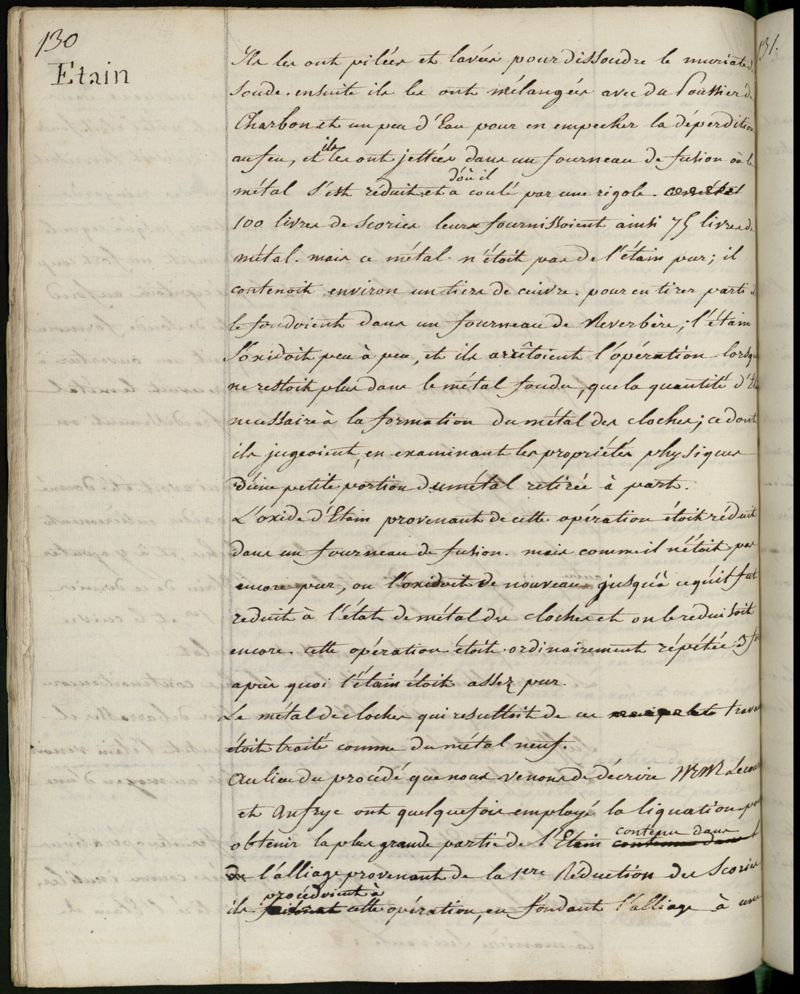 130
Etain
131.
Ils les ont pilées et lavées pour dissoudre le muriate d
Soude. ensuite ils les ont mélangées avec du Poussier de
Charbon et un peu d'Eau pour en empecher la déperdition
au feu, et ils les ont jettées dans un fourneau de fusion où le
métal s'est réduit et d'où il a coulé par une rigole.
100 livres de scories leurs fournissoient ainsi 75 livres de
métal. mais ce métal n'étoit pas de l'étain pur; il
contenoit environ un tiers de cuivre. pour en tirer parti
le fondoient dans un fourneau de Reverbère; l'étain
s'oxidoit peu à peu, et ils arrêtoient l'opération lorsqu
ne restoit plus dans le métal fondu, que la quantité d'Et
necessaire à la formation du métal des cloches; ce dont
ils jugeoient, en examinant les propriétés physiques
d'une petite portion du métal retirée à part.
L'oxide d'Etain provenant de cette opération étoit réduit
dans un fourneau de fusion. mais comme il n'étoit pas
encore pur, on l'oxidoit de nouveau jusqu'à ce qu'il fut
reduit à l'état de métal des cloches et on le reduisoit
encore. cette opération étoit ordinairement répétée 3 fo
après quoi l'étain étoit assez pur.
Le métal de cloches qui resultoit de ces travau
étoit traité comme du métal neuf.
Au lieu du procédé que nous venons de décrire MM Lecou
et Anfrye ont quelquefois employé la liquation pou
obtenir la plus grande partie de l'Etain contenu dans
l'alliage provenant de la 1ere Réduction des Scories
ils procédoient à cette opération, en fondant l'alliage à une